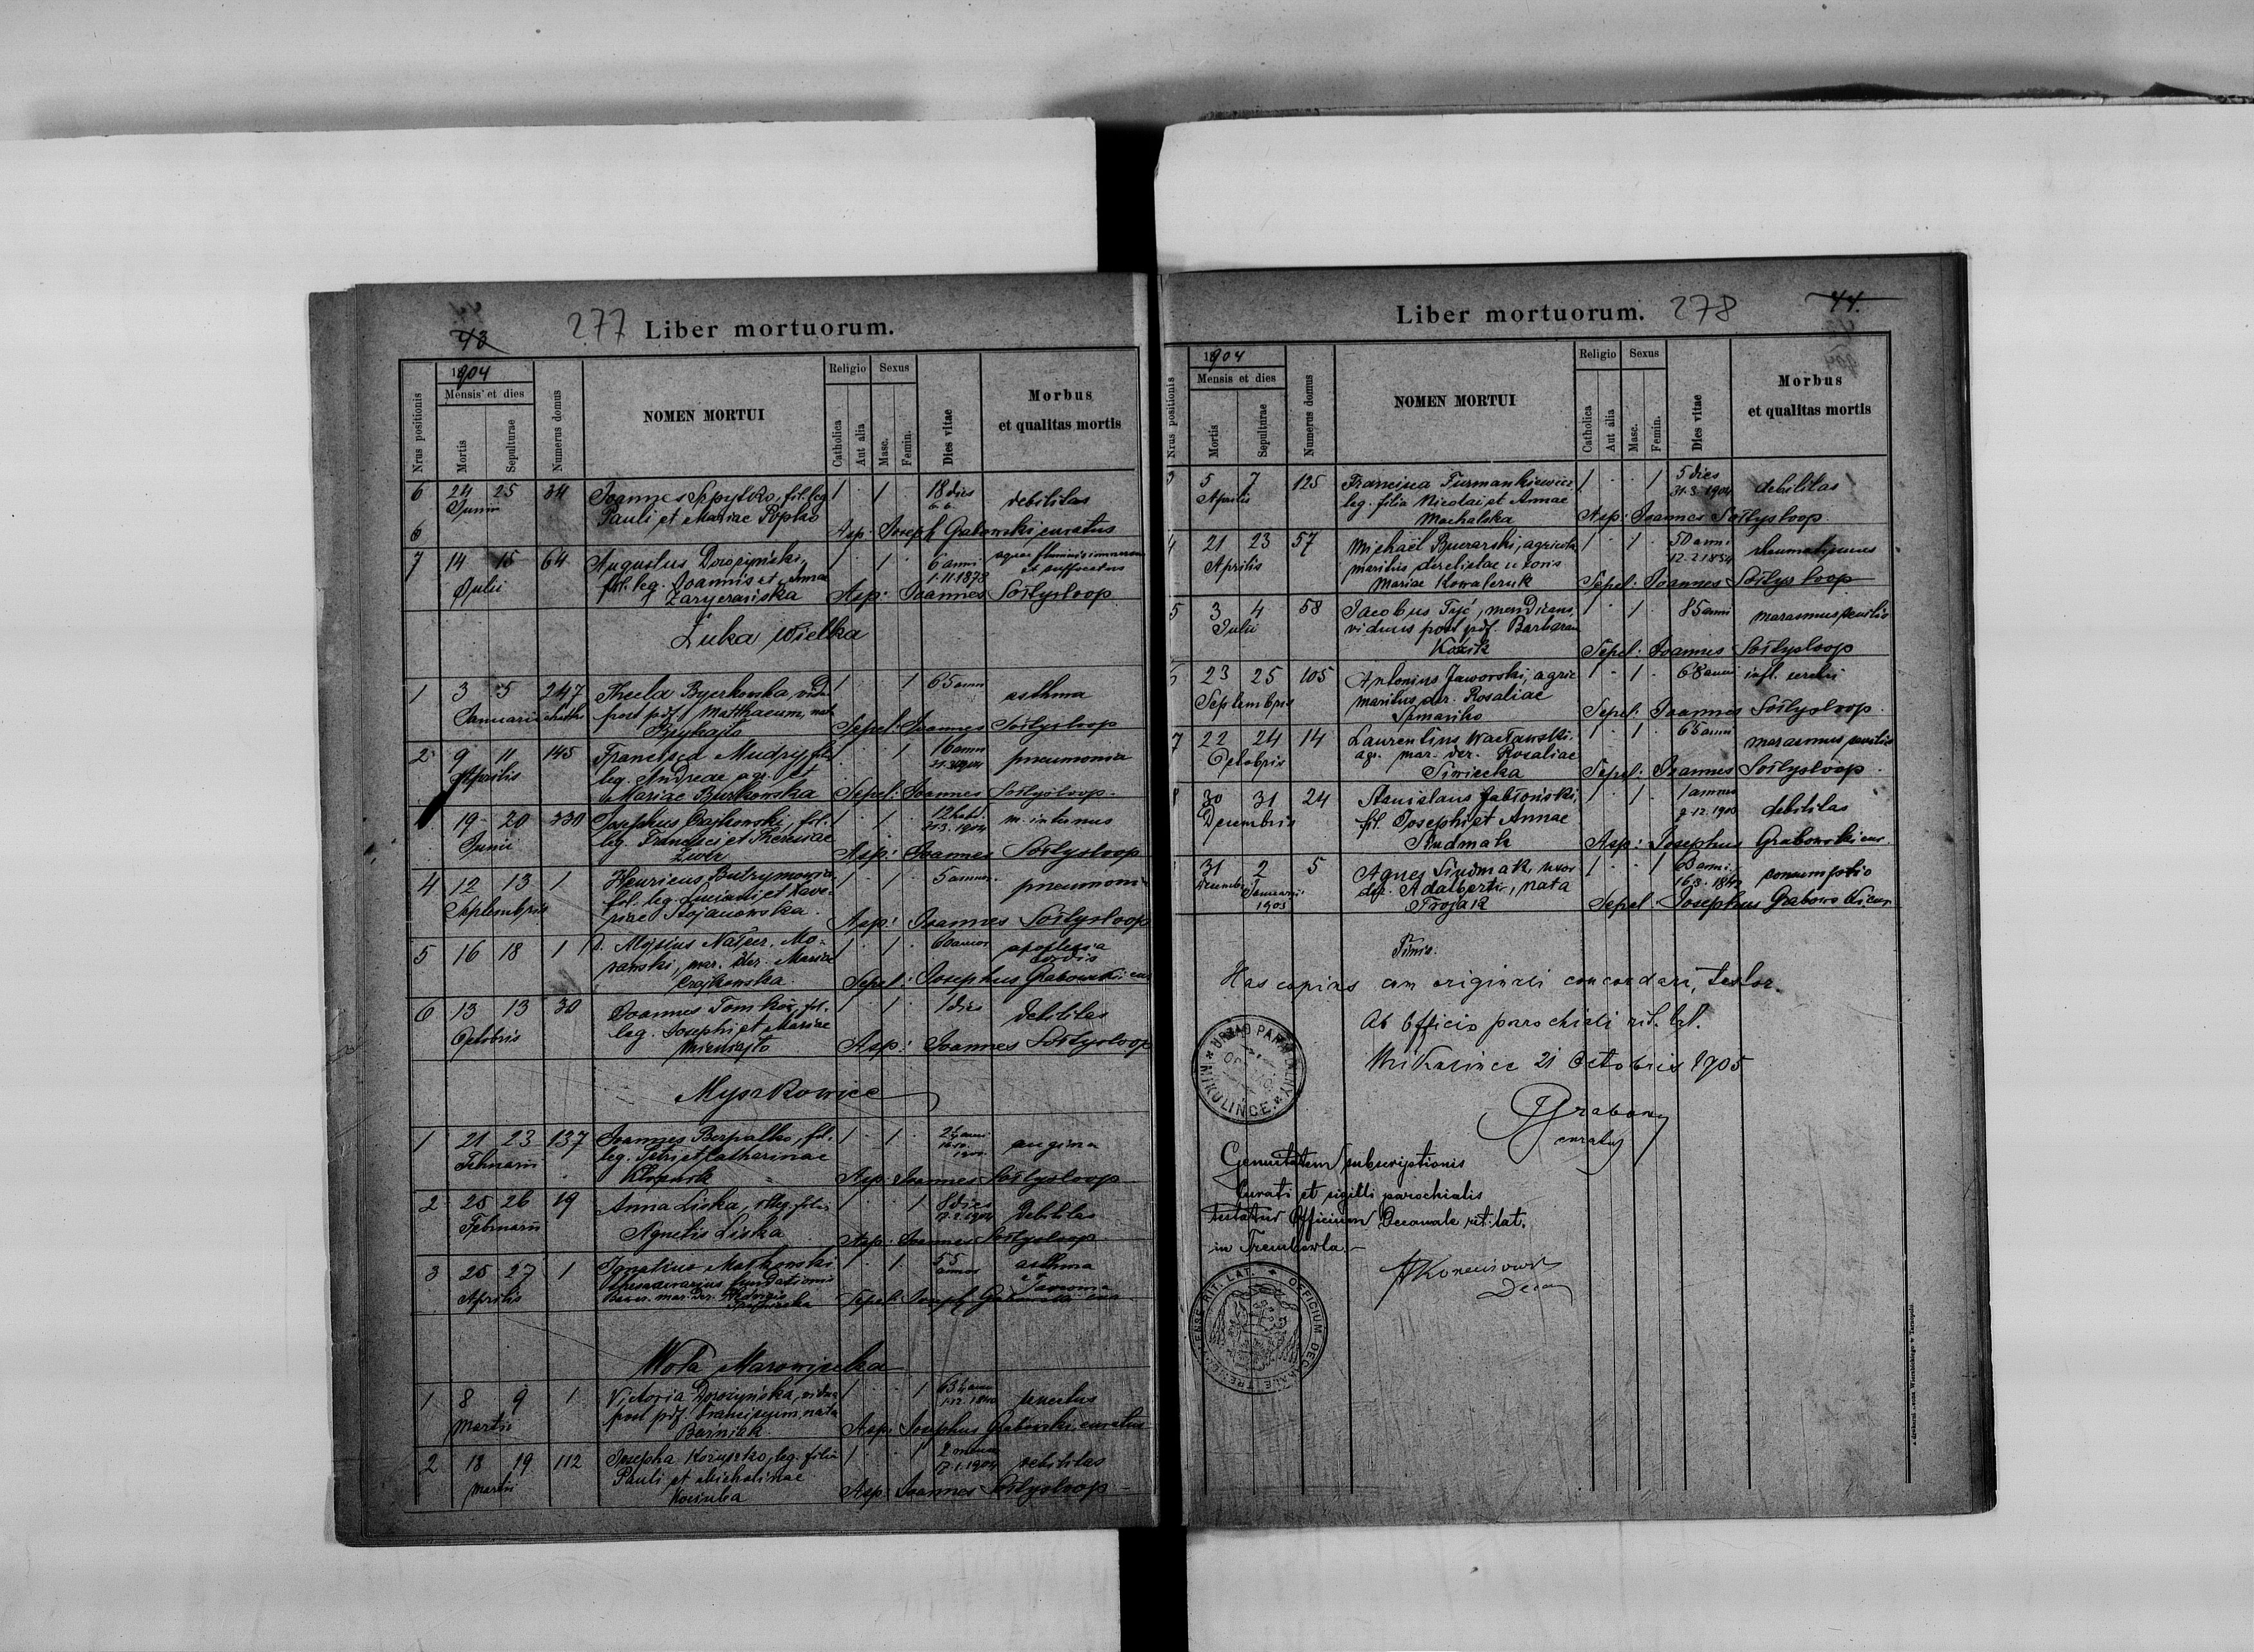 43
277 Liber mortuorum.
Nrus positionis
1904
Mensis et dies
Mortis
Sepulturae
Numerus domus
NOMEN MORTUI
Religio
Catholica
Aut alia
Sexus
Masc.
Femin.
Dies vitae
Morbus
et qualitas mortis
6 24 25 34 Joannes Szpytko, fil. leg. 1 1 18 dies debilitas
Junii Pauli et Mariae Popko 6.6.
6 Asp: Joseph Grabowski, curatus
7 14 15 64 Augustus Doroszyński, 1 1 6 anni
Julii fil. leg. Joannis et Anna 1.11.1878 et suffocatus
Asp: Joannes Sołtysloop
Łuka Wielka
1 3 5 247 Thecla Byczkowska, vid. 1 1 65 anni asthma
Januarii post pdf. Matthaeum, nata
Sepel: Joannes Sołtysloop
2 9 11 145 Francisca Mudry, fil. 1 1 16 anni pneumonia
Aprilis leg. Andreae agr. et
Mariae Burkowska Sepel: Joannes Sołtysloop
19 20 330 Josephus Czajkowski, fil. 1 1 12 hebd. m. internus
Junii leg. Francisci et Theresiae 31.3.1904
Asp: Joannes Sołtysloop
4 12 13 1 Henricus Butrymowicz 1 1 5 annor. pneumoni
Septembris fil. leg. Luciani et Xave-
riae Stojanowska Asp: Joannes Sołtysloop
5 16 18 1 Mo- 1 1 60 annor apoplexia
rawski, mar. der. Mariae cordis
Czajkowska Sepel: Josephus Grabowski cur
6 13 13 30 Joannes Tomków, fil. 1 1 1 dies debilitas
Octobris leg. Josephi et Mariae
Asp: Joannes Sołtysloop
Myszkowice
1 21 23 137 Joannes Bezpalko, fil. 1 1 angina
Februarii leg. Petri et Catharinae
Asp: Joannes Sołtysloop
2 25 26 19 Anna Liska, illeg. filia 1 1 8 dies debilitas
Februarii Agnetis Liska 17.2.1904
Asp: Joannes Sołtysloop
3 25 27 1 Ignatius Matkowski 1 1 55 asthma
Aprilis fundationis annor
Sepel: Joseph Grabowski cur
Wola Mazowiecka
1 8 9 1 Victoria Doroszyńska, vidua 1 1
Martii post pdf. Franciscum, nata
Baśniak Asp: Josephus Grabowski, curatus
2 18 19 112 Josepha Kożuszko, leg. filia 1 1 2 mens. debilitas
Martii Pauli et Michalinae 17.1.1904
Asp: Joannes Sołtysloop
Liber mortuorum. 278
44.
Nrus positionis
1904
Mensis et dies
Mortis
Sepulturae
Numerus domus
NOMEN MORTUI
Religio
Catholica
Aut alia
Sexus
Masc.
Femin.
Dies vitae
Morbus
et qualitas mortis
3 5 7 125 Francisca Furmankiewicz 1 1 5 dies debilitas
Aprilis leg. filia Nicolai et Annae 31.3.1904
Machalska Asp: Joannes Sołtysloop
4 21 23 57 Michaël Burarski, agricola 1 1 50 anni rheumatismus
Aprilis maritus derelictae uxoris 12.2.1854
Mariae Kowalczuk Sepel: Joannes Sołtysloop
5 3 4 58 Jacobus Tyć, mendicans, 1 1 85 anni marasmus senilis
Julii viduus post pdf. Barbaram
Kozik Sepel: Joannes Sołtysloop
6 23 25 105 Antonius Jaworski, agric 1 1 68 anni
Septembris maritus der. Rosaliae
Sepel: Joannes Sołtysloop
7 22 24 14 Laurentius Wacławski, 1 1 65 anni marasmus senilis
Octobris agr. mar. der. Rosaliae
Siwiecka Sepel: Joannes Sołtysloop
8 30 31 24 Stanislaus Jabłoński, 1 1 1 annus debilitas
Decembris fil. Josephi et Annae
Sindmak Asp: Josephus Grabowski cur.
31 2 5 Agnes Sindmak, uxor 1 1 60 anni consumptio
Decembr. Januarii def. Adalberti, nata
1905 Trojak Sepel: Josephus Grabowski cur
Finis.
Has copias cum originali concordari, testor.
Ab Officio parochiali rit. lat.
Mikulince 21 Octobris 1905
Grabows
curatus
URZĄD PARAFIALNY MIKULIŃCE
Genuitatem subscriptionis
Curati et sigilli parochialis
testatur Officium Decanale rit. lat.
in Trembowla.
OFFICIUM DECANALE RIT. LAT.